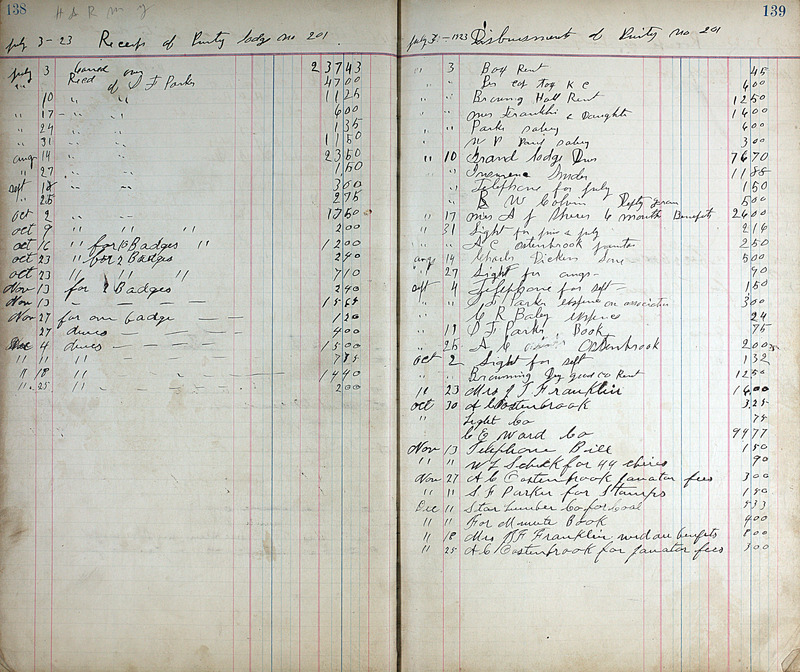 138
July 3-23 Receips of Purity lodge no 201
July 3 on 237 43
" Recd of S F Parks 47 00
10 " " 11 25
" 17 - " " 6 00
" 24 " " 1 35
" 31 " " 11 50
aug 14 " " 23 50
" 27 " " 1 50
sept 18 " " 3 00
" 25 2 75
oct 2 " - 17 50
oct 9 " " " 2 00
oct 16 " for 10 Badges " 12 00
oct 23 " for 2 Badges 2 40
oct 23 " " " 7 10
Nov 13 for 2 Badges 2 40
Nov 13 " - - - 15 65
Nov 27 for one badge - - - 1 20
27 dues - - - 4 00
Dec 4 dues - - - - 15 00
" 11 " - 7 75
" 18 " - - - 14 40
" 25 " - - - - 2 00
139
July 3-1923 Disbursment of Purity no 201
" 3 Box Rent 45
" " K C 6 00
" " Browning Hall Rent 12 50
" " mrs Franklin & Daughter 16 00
" " Parks salary 6 00
" " W P salary 3 00
" 10 Grand lodge Dues 76 70
" " 11 88
" " Telephone for July 1 50
" " W Colvin Defty gran 5 00
" 17 mrs A J 6 month Benefits 26 00
" 31 Light for june & july 2 16
" " A C Oostenbrook janitor 2 50
aug 14 Charls Dickens 5 00
" 27 Light for augs - 90
sept 4 Telephone for sept - 1 50
" " S F Parks expense on association 3 00
" " C R Baley expence 24
" 19 S F Parks Book 75
" 25 A C Oostenbrook 2 00
oct 2 Light for sept 1 32
" " Browning Dry goods co Rent 12 50
" 23 Mrs J T Franklin 16 00
oct 30 A C Oostenbrook 3 25
" Light Co 75
C E Ward Co 99 77
Nov 13 Telephone Bill 1 50
" " W F for 44 90
Nov 27 A C Oostenbrook janator fees 3 00
" " S F Parker for Stamps 1 50
Dec 11 Star Lumber Co for Coal 5 33
" " For Minute Book 4 00
" 18 Mrs Franklin benefits 8 00
" 25 A C Oostenbrook for janator fees 3 00